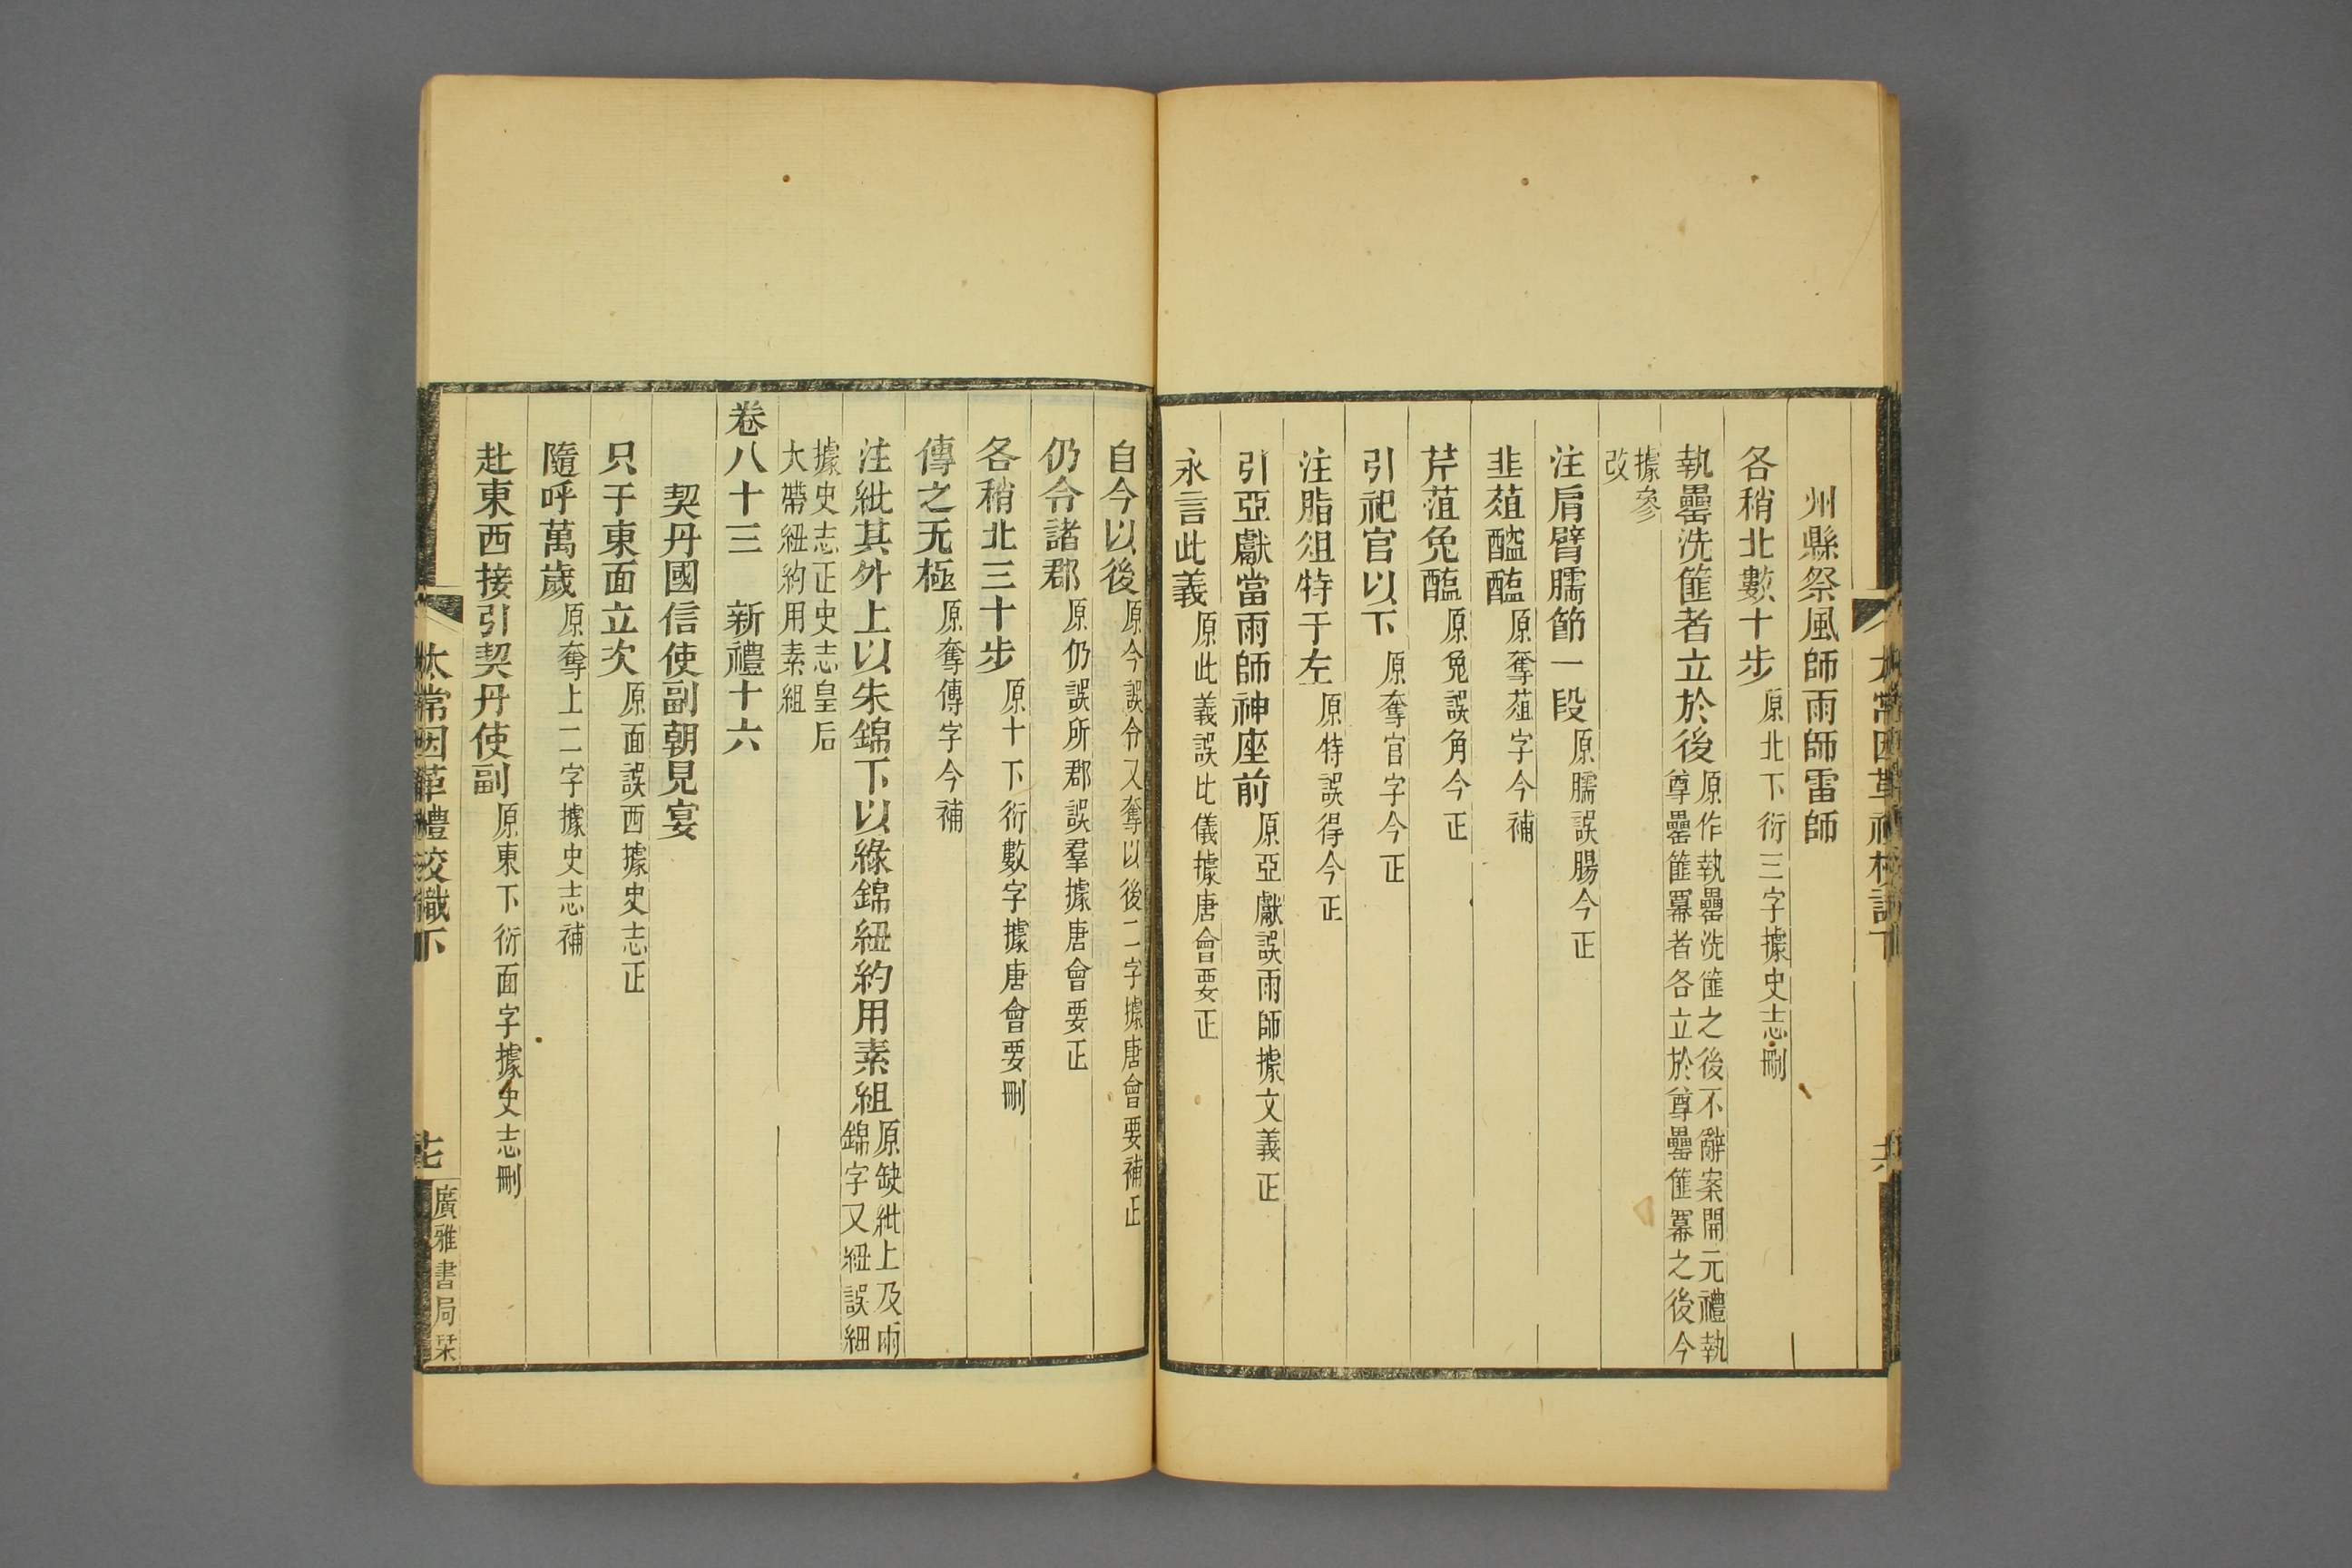 州縣祭風師雨師雷師
各稍北數十步原北下衍三字據史志刪
執罍洗篚者立於後原作執罍洗篚之後不辭案開元禮執尊罍篚羃者各立於尊罍篚羃之後今
據參改
注肩臂臑節一段原臑誤腸今正
韭葅醯醢原奪葅字今補
芹菹兔醢原兔誤角今正
引祀官以下原奪官字今正
注脂俎特于左原特誤得今正
引亞獻當雨師神座前原亞獻誤雨師據文義正
永言此義原此義誤比儀據唐會要正
自今以後原今誤令又奪以後二字據唐會要補正
仍令諸郡原仍誤所郡誤羣據唐會要正
各稍北三十步原十下衍數字據唐會要刪
傳之无極原奪傳字今補
注紕其外上以朱錦下以綠錦紐約用素組原缺紕上及兩錦字又紐誤細
據史志正史志皇后大帶紐約用素組
卷八十三 新禮十六
契丹國信使副朝見宴
只于東面立次原面誤西據史志正
隨呼萬歲原奪上二字據史志補
赴東西接引契丹使副原東下衍面字據史志刪
太常因革禮校識下
廣雅書局栞